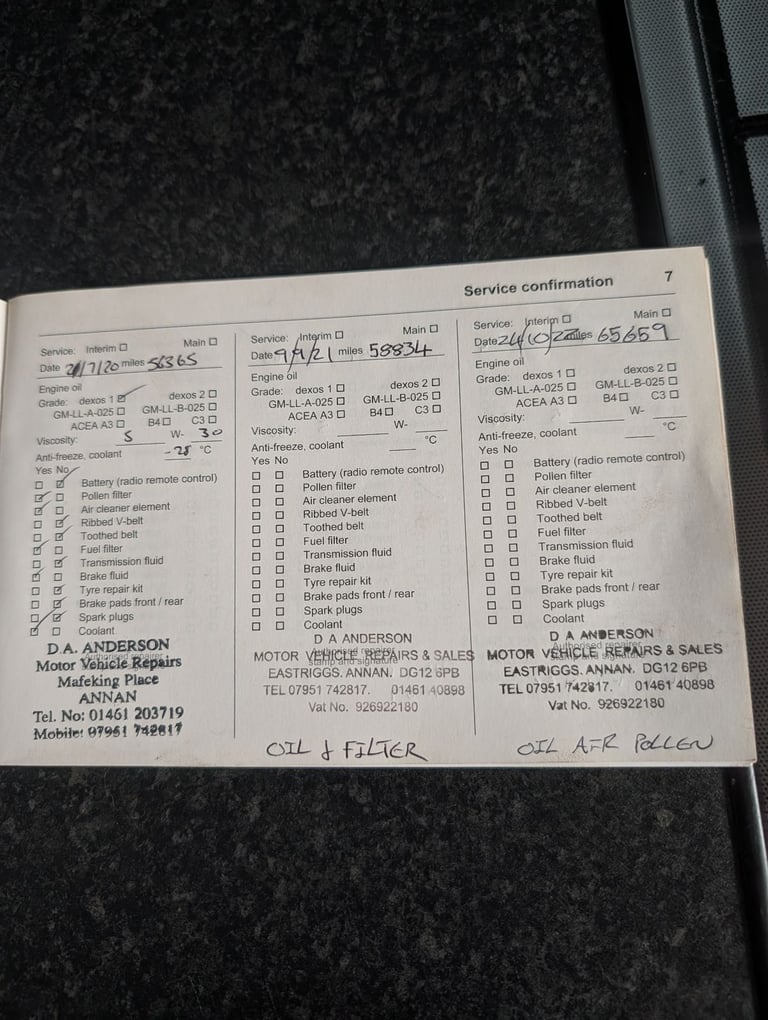 Service confirmation 7
Service: Interim ☐ Main ☐
Date 2/7/20 miles 56365
Engine oil
Grade: dexos 1 ☑ dexos 2 ☐
GM-LL-A-025 ☐ GM-LL-B-025 ☐
ACEA A3 ☐ B4 ☐ C3 ☐
Viscosity: 5 W- 30
Anti-freeze, coolant -28 °C
Yes No
☐ ☑ Battery (radio remote control)
☑ ☐ Pollen filter
☑ ☐ Air cleaner element
☐ ☑ Ribbed V-belt
☐ ☑ Toothed belt
☑ ☐ Fuel filter
☐ ☑ Transmission fluid
☑ ☐ Brake fluid
☐ ☑ Tyre repair kit
☐ ☑ Brake pads front / rear
☐ ☑ Spark plugs
☑ ☐ Coolant
D.A. ANDERSON
Motor Vehicle Repairs
Mafeking Place
ANNAN
Tel. No: 01461 203719
Mobile: 07951 742817
Service: Interim ☐ Main ☐
Date 9/9/21 miles 58834
Engine oil
Grade: dexos 1 ☐ dexos 2 ☐
GM-LL-A-025 ☐ GM-LL-B-025 ☐
ACEA A3 ☐ B4 ☐ C3 ☐
Viscosity: W-
Anti-freeze, coolant °C
Yes No
☐ ☐ Battery (radio remote control)
☐ ☐ Pollen filter
☐ ☐ Air cleaner element
☐ ☐ Ribbed V-belt
☐ ☐ Toothed belt
☐ ☐ Fuel filter
☐ ☐ Transmission fluid
☐ ☐ Brake fluid
☐ ☐ Tyre repair kit
☐ ☐ Brake pads front / rear
☐ ☐ Spark plugs
☐ ☐ Coolant
D A ANDERSON
Authorised repairer
MOTOR VEHICLE REPAIRS & SALES
stamp and signature
EASTRIGGS. ANNAN. DG12 6PB
TEL 07951 742817. 01461 40898
Vat No. 926922180
OIL & FILTER
Service: Interim ☐ Main ☐
Date 24/10/22 miles 65659
Engine oil
Grade: dexos 1 ☐ dexos 2 ☐
GM-LL-A-025 ☐ GM-LL-B-025 ☐
ACEA A3 ☐ B4 ☐ C3 ☐
Viscosity: W-
Anti-freeze, coolant °C
Yes No
☐ ☐ Battery (radio remote control)
☐ ☐ Pollen filter
☐ ☐ Air cleaner element
☐ ☐ Ribbed V-belt
☐ ☐ Toothed belt
☐ ☐ Fuel filter
☐ ☐ Transmission fluid
☐ ☐ Brake fluid
☐ ☐ Tyre repair kit
☐ ☐ Brake pads front / rear
☐ ☐ Spark plugs
☐ ☐ Coolant
D A ANDERSON
Authorised repairer
MOTOR VEHICLE REPAIRS & SALES
stamp and signature
EASTRIGGS. ANNAN. DG12 6PB
TEL 07951 742817. 01461 40898
Vat No. 926922180
OIL AIR POLLEN